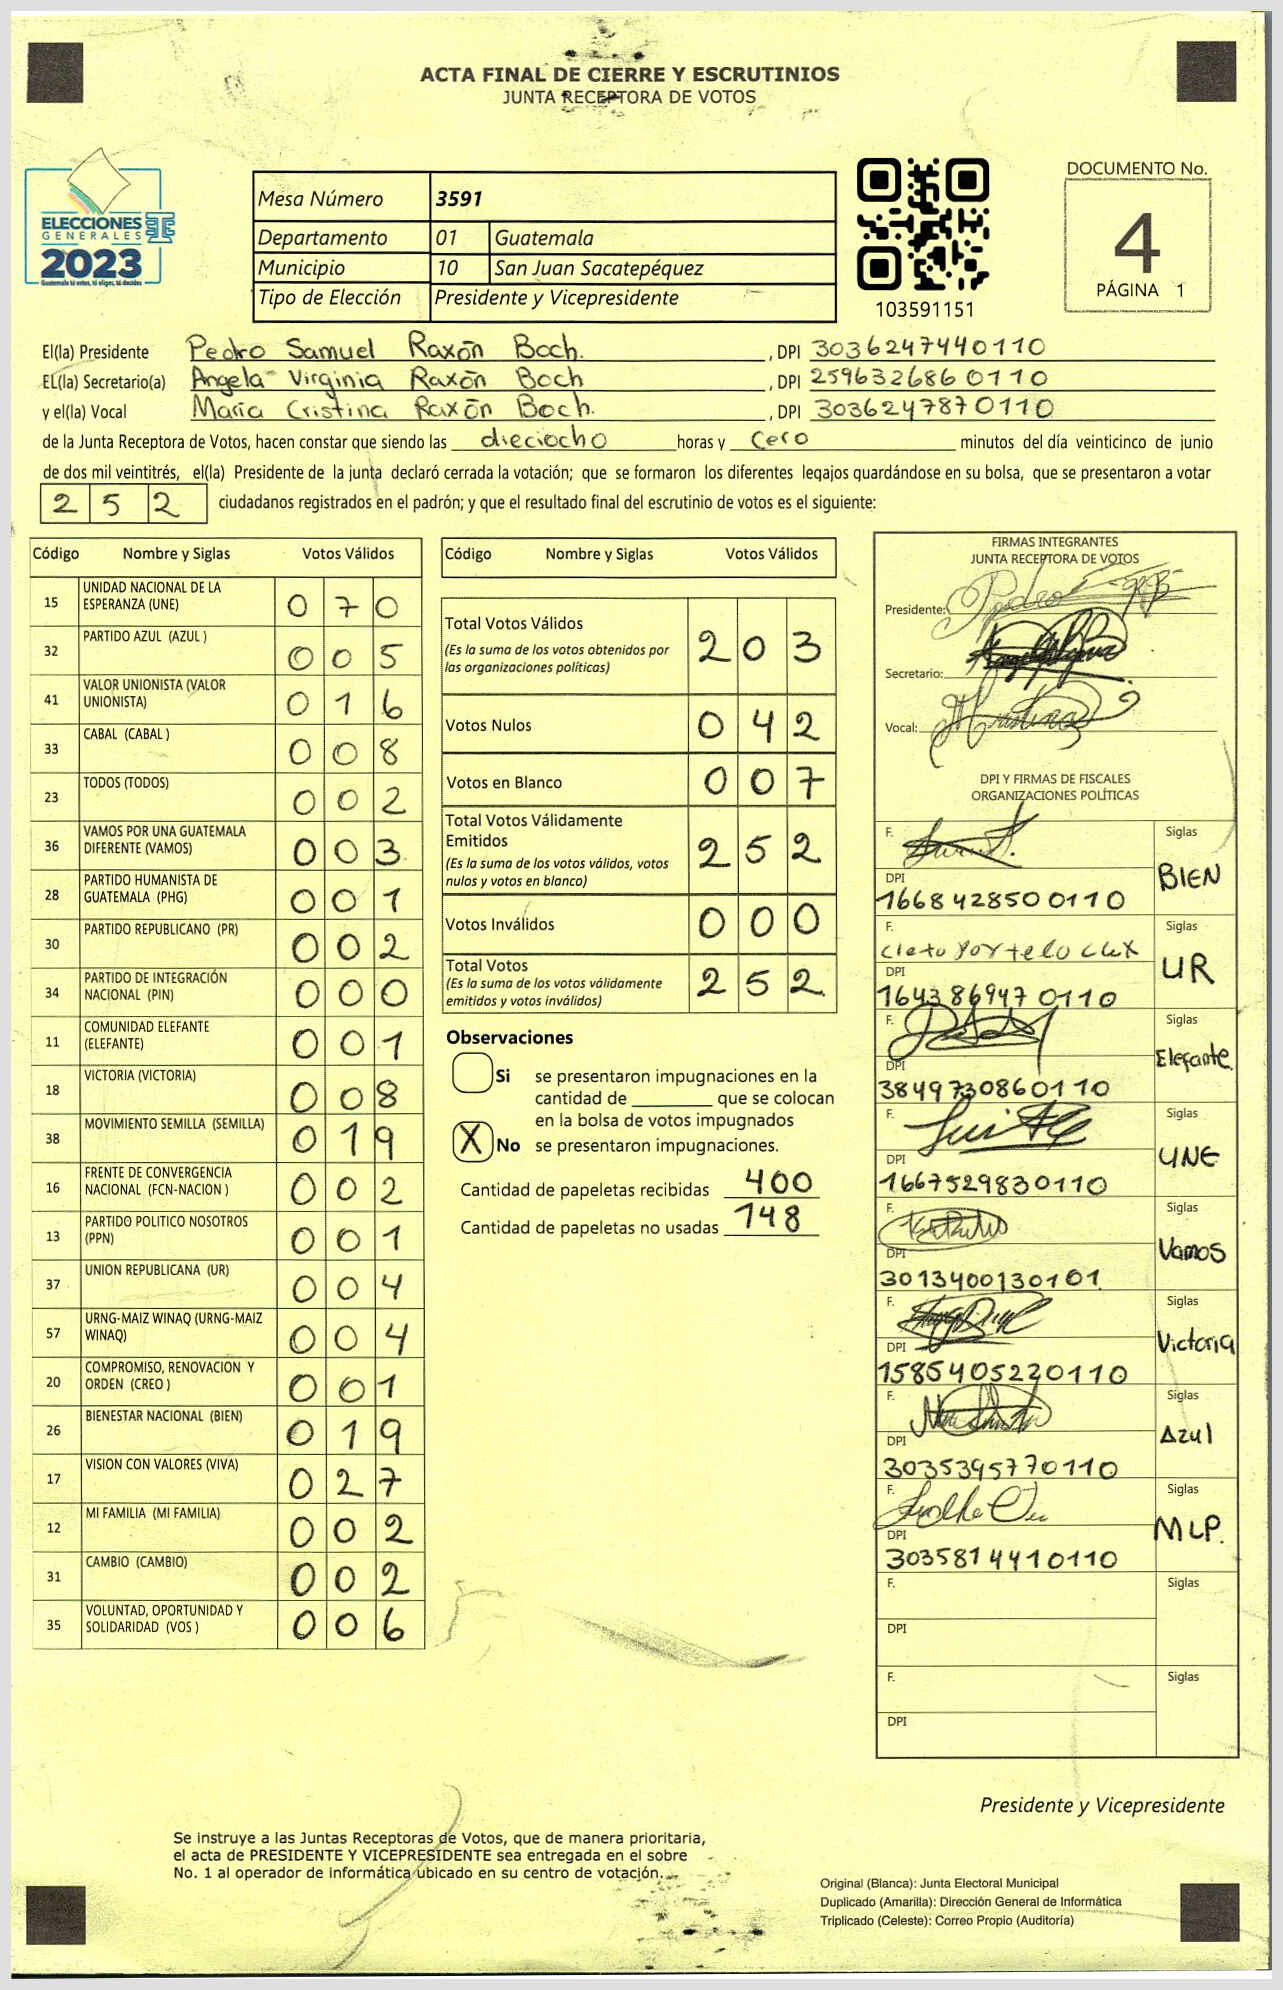 ACTA FINAL DE CIERRE Y ESCRUTINIOS
JUNTA RECEPTORA DE VOTOS
ELECCIONES
GENERALES
2023
Guatemala tú votas, tú eliges, tú decides
Mesa Número 3591
Departamento 01 Guatemala
Municipio 10 San Juan Sacatepéquez
Tipo de Elección Presidente y Vicepresidente
103591151
DOCUMENTO No.
4
PÁGINA 1
El(la) Presidente Pedro Samuel Raxón Boch. , DPI 3036247440110
EL(la) Secretario(a) Angela Virginia Raxón Boch , DPI 2596326860110
y el(la) Vocal Maria Cristina Raxón Boch. , DPI 3036247870110
de la Junta Receptora de Votos, hacen constar que siendo las dieciocho horas y cero minutos del día veinticinco de junio
de dos mil veintitrés, el(la) Presidente de la junta declaró cerrada la votación; que se formaron los diferentes legajos guardándose en su bolsa, que se presentaron a votar
252 ciudadanos registrados en el padrón; y que el resultado final del escrutinio de votos es el siguiente:
Código Nombre y Siglas Votos Válidos
15 UNIDAD NACIONAL DE LA ESPERANZA (UNE) 070
32 PARTIDO AZUL (AZUL ) 005
41 VALOR UNIONISTA (VALOR UNIONISTA) 016
33 CABAL (CABAL ) 008
23 TODOS (TODOS) 002
36 VAMOS POR UNA GUATEMALA DIFERENTE (VAMOS) 003
28 PARTIDO HUMANISTA DE GUATEMALA (PHG) 001
30 PARTIDO REPUBLICANO (PR) 002
34 PARTIDO DE INTEGRACIÓN NACIONAL (PIN) 000
11 COMUNIDAD ELEFANTE (ELEFANTE) 001
18 VICTORIA (VICTORIA) 008
38 MOVIMIENTO SEMILLA (SEMILLA) 019
16 FRENTE DE CONVERGENCIA NACIONAL (FCN-NACION ) 002
13 PARTIDO POLITICO NOSOTROS (PPN) 001
37 UNION REPUBLICANA (UR) 004
57 URNG-MAIZ WINAQ (URNG-MAIZ WINAQ) 004
20 COMPROMISO, RENOVACION Y ORDEN (CREO ) 001
26 BIENESTAR NACIONAL (BIEN) 019
17 VISION CON VALORES (VIVA) 027
12 MI FAMILIA (MI FAMILIA) 002
31 CAMBIO (CAMBIO) 002
35 VOLUNTAD, OPORTUNIDAD Y SOLIDARIDAD (VOS ) 006
Código Nombre y Siglas Votos Válidos
Total Votos Válidos 203
(Es la suma de los votos obtenidos por
las organizaciones políticas)
Votos Nulos 042
Votos en Blanco 007
Total Votos Válidamente
Emitidos 252
(Es la suma de los votos válidos, votos
nulos y votos en blanco)
Votos Inválidos 000
Total Votos 252
(Es la suma de los votos válidamente
emitidos y votos inválidos)
Observaciones
Si se presentaron impugnaciones en la
cantidad de ________ que se colocan
en la bolsa de votos impugnados
X No se presentaron impugnaciones.
Cantidad de papeletas recibidas 400
Cantidad de papeletas no usadas 148
FIRMAS INTEGRANTES
JUNTA RECEPTORA DE VOTOS
Presidente:
Secretario:
Vocal:
DPI Y FIRMAS DE FISCALES
ORGANIZACIONES POLÍTICAS
F. Siglas
DPI BIEN
1668428500110
F. Siglas
DPI UR
1643869470110
F. Siglas
DPI Elefante
3849730860110
F. Siglas
DPI UNE
1667529830110
F. Siglas
DPI Vamos
3013400130101
F. Siglas
DPI Victoria
1585405220110
F. Siglas
DPI Azul
3035395770110
F. Siglas
DPI MLP.
3035814410110
F. Siglas
DPI
F. Siglas
DPI
Presidente y Vicepresidente
Se instruye a las Juntas Receptoras de Votos, que de manera prioritaria,
el acta de PRESIDENTE Y VICEPRESIDENTE sea entregada en el sobre
No. 1 al operador de informática ubicado en su centro de votación.
Original (Blanca): Junta Electoral Municipal
Duplicado (Amarilla): Dirección General de Informática
Triplicado (Celeste): Correo Propio (Auditoría)